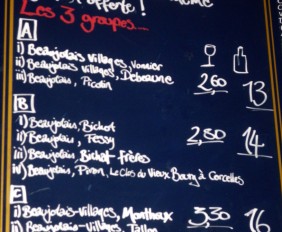 offerte !
Les 3 groupes....
A
i) Beaujolais Villages, Vonnier
ii) Beaujolais Villages, Debeaune
iii) Beaujolais, Picolin
2,60 13
B
i) Beaujolais, Bichert
ii) Beaujolais, Tessy
iii) Beaujolais, Bichof-Frères
iv) Beaujolais, Piron, Le Clos du Vieux Bourg à Corcelles
2,80 14
C
i) Beaujolais-Villages, Monthaux
ii) Beaujolais-Villages, Tallon
3,30 16